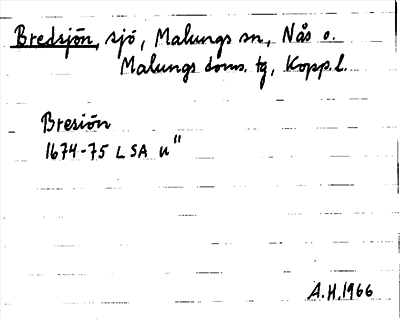 Bredsjön, sjö, Malungs sn, Nås o.
Malungs doms. tg, Kopp. l.
Bresiön
1674-75 LSA u"
A.H. 1966